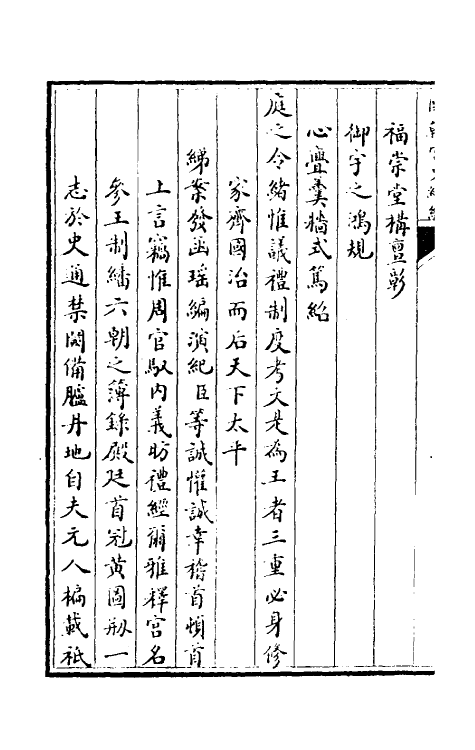 福崇堂構亶彰
御宇之鴻規
心亹羹牆式篤紹
庭之令緒惟議禮制度考文是為王者三重必身修
家齊國治而后天下太平
綈案發函瑤編演紀臣等誠懽誠幸稽首頓首
上言竊惟周官馭內義昉禮經爾雅釋宮名
參王制繙六朝之簿錄殿廷首冠黃圖剏一
志於史通禁闥備臚丹地自夫元人楄載祇